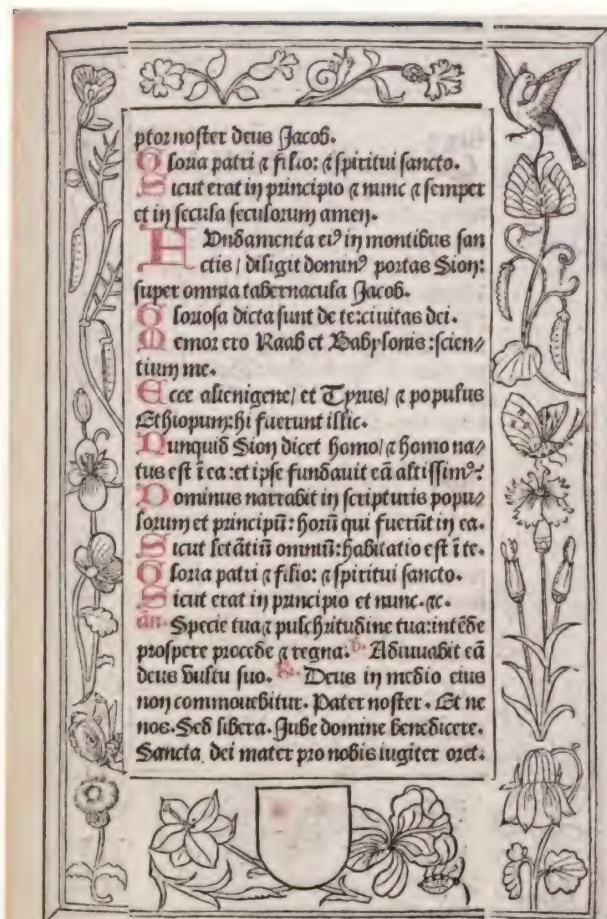 ptor noster deus Jacob.
Gloria patri ⁊ filio: ⁊ spiritui sancto.
Sicut erat in principio ⁊ nunc ⁊ semper
et in secula seculorum amen.
FUndamenta eiꝰ in montibus san
ctis / diligit dominꝰ portas Sion:
super omnia tabernacula Jacob.
Gloriosa dicta sunt de te: ciuitas dei.
Memor ero Raab et Babylonis: scien/
tium me.
Ecce alienigene/ et Tyrus/ ⁊ populus
Ethiopum: hi fuerunt illic.
Nunquid Sion dicet homo/ ⁊ homo na/
tus est ī ea: et ipse fundauit eā altissimꝰ:
Dominus narrabit in scripturis popu/
lorum et principū: horū qui fuerūt in ea.
Sicut letātiū omniū: habitatio est ī te.
Gloria patri ⁊ filio: ⁊ spiritui sancto.
Sicut erat in principio et nunc. ⁊c.
añ. Specie tua ⁊ pulchritudine tua: intēde
prospere procede ⁊ regna. Adiuuabit eā
deus vultu suo. Deus in medio eius
non commouebitur. Pater noster. Et ne
nos. Sed libera. Jube domine benedicere.
Sancta dei mater pro nobis iugiter oret.